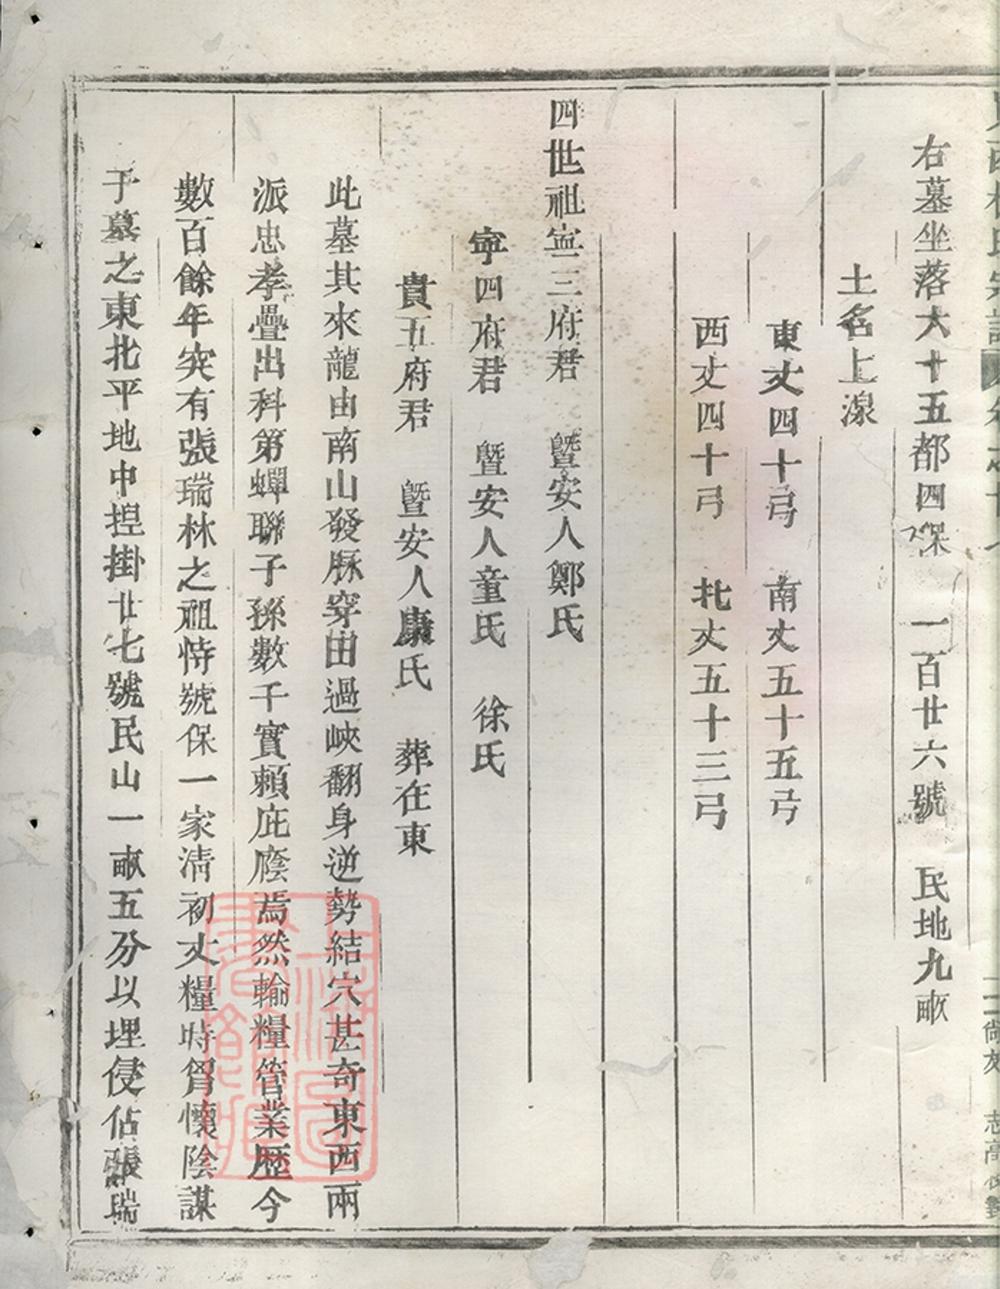 右墓坐落大十五都四保　一百廿六號　民地九畝
土名上湶
東丈四十弓　南丈五十五弓
西丈四十弓　北丈五十三弓
四世祖寍三府君　暨安人鄭氏
寍四府君　暨安人童氏　徐氏
貴五府君　暨安人康氏　葬在東
此墓其來龍由南山發脉穿田過峽翻身逆勢結穴甚奇東西兩
派忠孝疊出科第蟬聯子孫數千實賴庇廕焉然輸糧管業歷今
數百餘年突有張瑞林之祖恃號保一家清初丈糧時胷懷陰謀
于墓之東北平地中揑掛廿七號民山一畝五分以埋侵佔張瑞